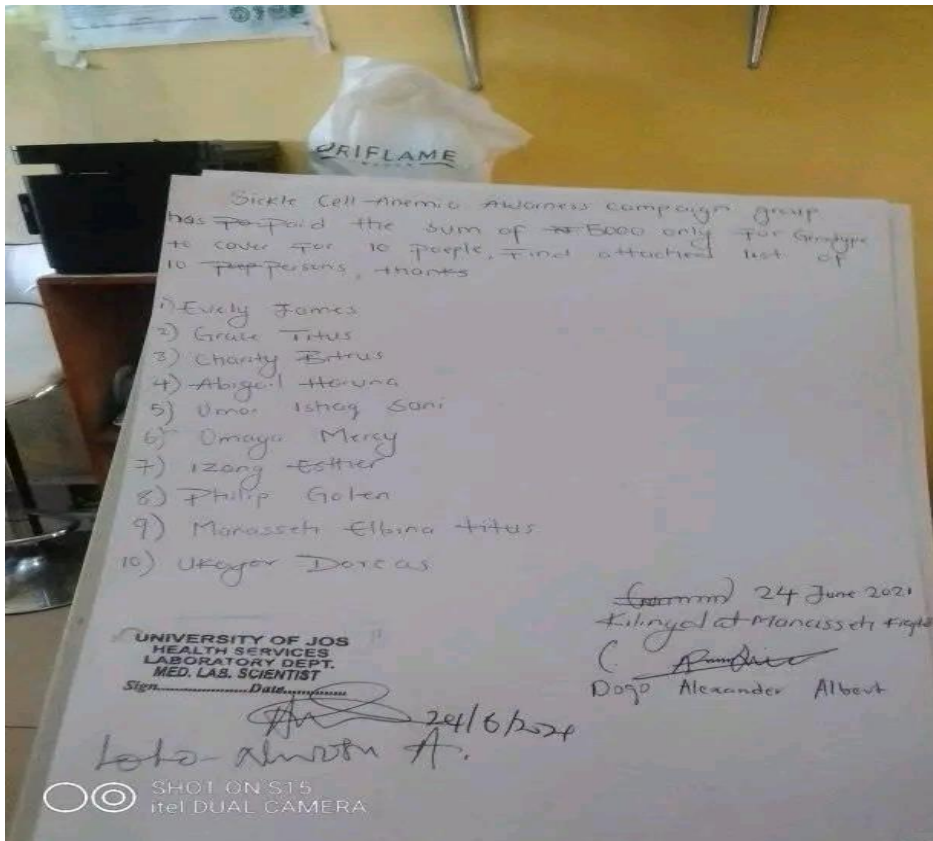 ORIFLAME
Sickle Cell Anemia Awarness campaign group
has Po Paid the sum of ₦ 5000 only For Genotype
to cover For 10 people, Find attached list of
10 Pep persons, thanks
1) Evely James
2) Grace Titus
3) Charity Bitrus
4) Abigail Haruna
5) Umar Ishaq Sani
6) Omaya Mercy
7) Izang Esther
8) Philip Golen
9) Manasseh Elbina titus
10) Ukayer Dorcas
24 June 2021
Manasseh
Dogo Alexander Albert
UNIVERSITY OF JOS
HEALTH SERVICES
LABORATORY DEPT.
MED. LAB. SCIENTIST
Sign..................Date..............
24/6/2021
A.
SHOT ON S15
itel DUAL CAMERA